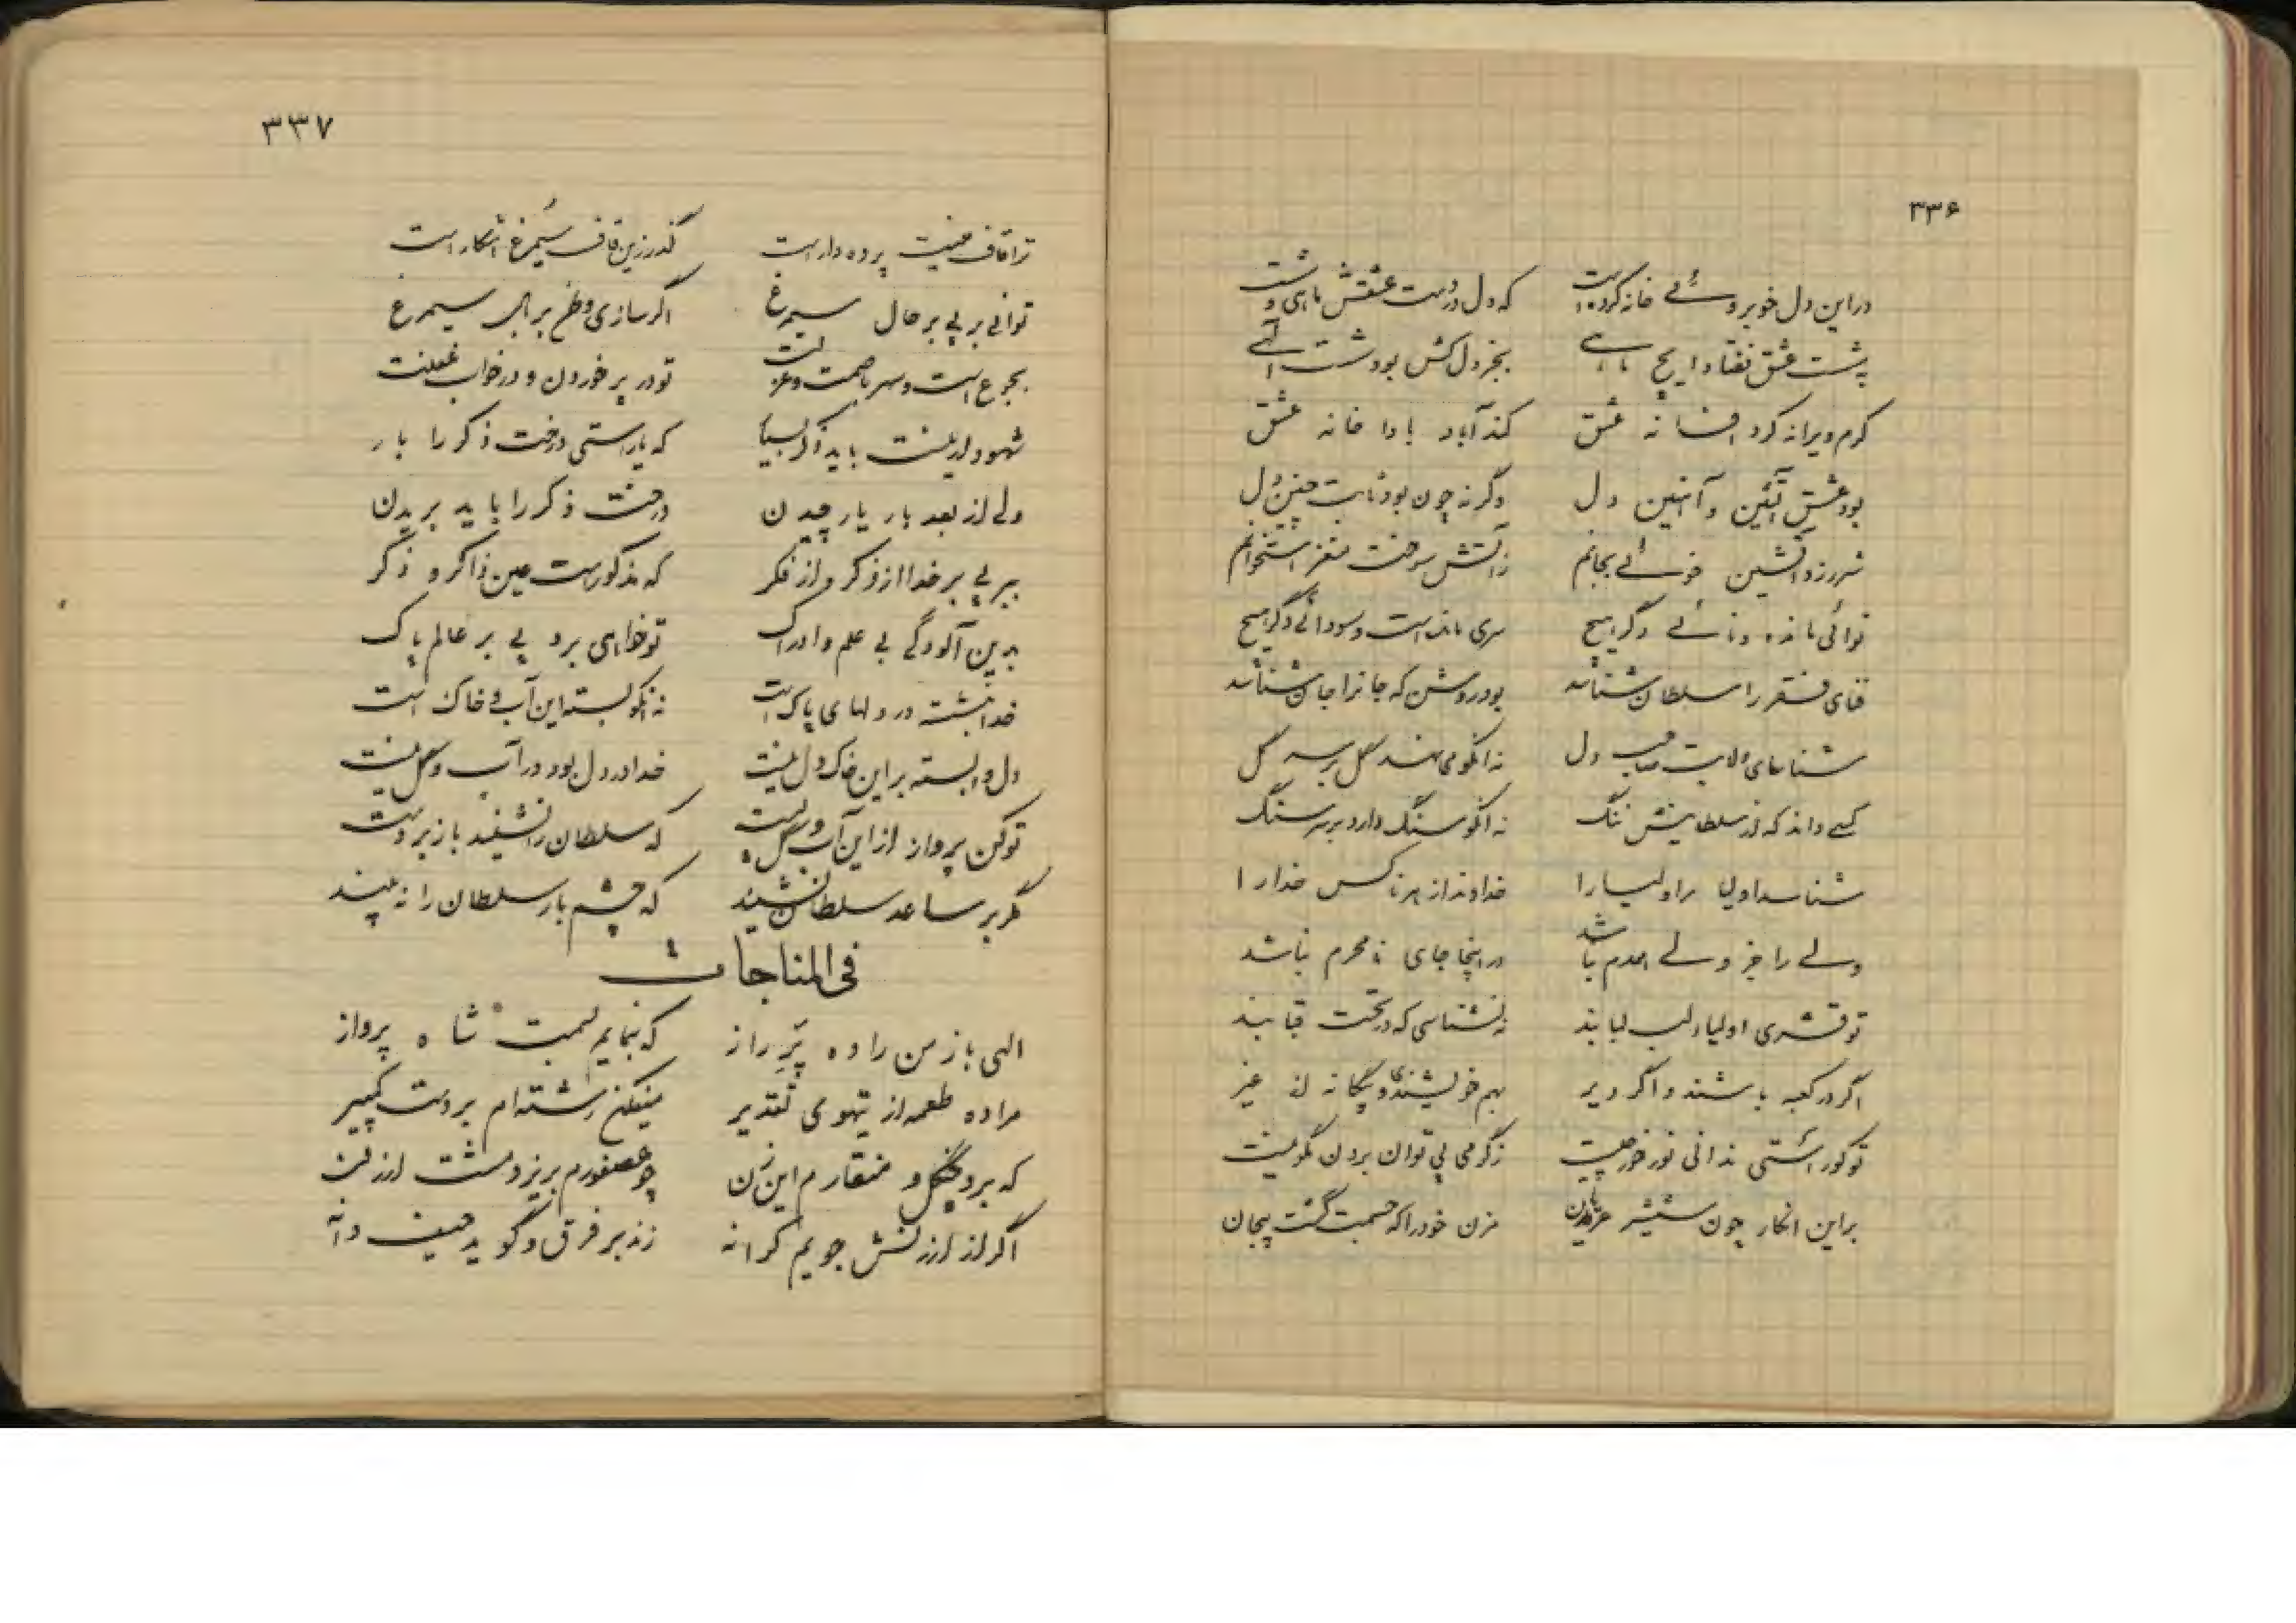 ۳۳۶
در این دل خوبروئے خانه کرده است که دل در دست عشقش ماهی و شست
بشست عشق نفتاد ایچ ماهے بجز دل کش بود شست آگهے
کرم ویرانه کرد افسانه عشق کند آباد بادا خانه عشق
بود عشق آتشین و آهنین دل وگرنه چون بود ثابت چنین دل
شرر زد آتشین خوئے بجانم ز آتش سوخت مغز استخوانم
نوائی مانده و نائے دگر هیچ سری مانده است و سودائی دگر هیچ
فنای فقر را سلطان شناسد بود روشن که جانرا جان شناسد
شناسای ولایت صاحب دل نه آنکو می نهد گل بر سر گل
کسے داند که از سلطانیش ننگ نه آنکو سنگ دارد بر سر سنگ
شناسد اولیا مر اولیا را خداوند از هر ناکس خدا را
ولے را جز ولے همدم نباشد در اینجا جای نامحرم نباشد
تو قشری اولیا لب لبابند نشناسی که در تحت قبابند
اگر در کعبه باشند و اگر دیر بهم خویشند و بیگانه از غیر
تو کور استی ندانی نور خور چیست ز گرمی پی توان بردن نکو نیست
بر این انکار چون شمشیر عریان مزن خود را که جسمت گشت بیجان
۳۳۷
ترا قاف منیت پرده دار است گذر زین قاف سیمرغ آشکار است
توانی برد پی بر حال سیمرغ اگر سازی وطن بر بال سیمرغ
بجوع است و سهر با صمت و عزلت تو در پر خوردن و در خواب غفلت
شهود ار نیست باید ذکر بسیار که یار استی درخت ذکر را بار
ولی از بعد بار یار چیدن درخت ذکر را باید بریدن
ببر پی بر خدا از ذکر و از فکر که مذکور است عین ذاکر و ذکر
بدین آلودگی بی علم و ادراک تو خواهی برد پی بر عالم پاک
خدا بنشسته در دلهای پاک است نه آنکو بسته این آب و خاک است
دل وابسته بر این خاک دل نیست خدا در دل بود در آب و گل نیست
تو کن پرواز از این آب و گل پست که سلطان را نشیند باز بر دست
مگر بر ساعد سلطان نشیند که چشم باز سلطان را نه بیند
فی المناجات
الهی باز من را ده پر راز که بنمایم بسمت شاه پرواز
مرا ده طعمه از تیهوی تقدیر میفکن رشته ام بر دست کمپیر
که برد چنگل و منقارم این زن چو عصفورم بریزد مشت ارزن
اگر از ارزنش جویم کرانه زند بر فرق و گوید حیف دانه